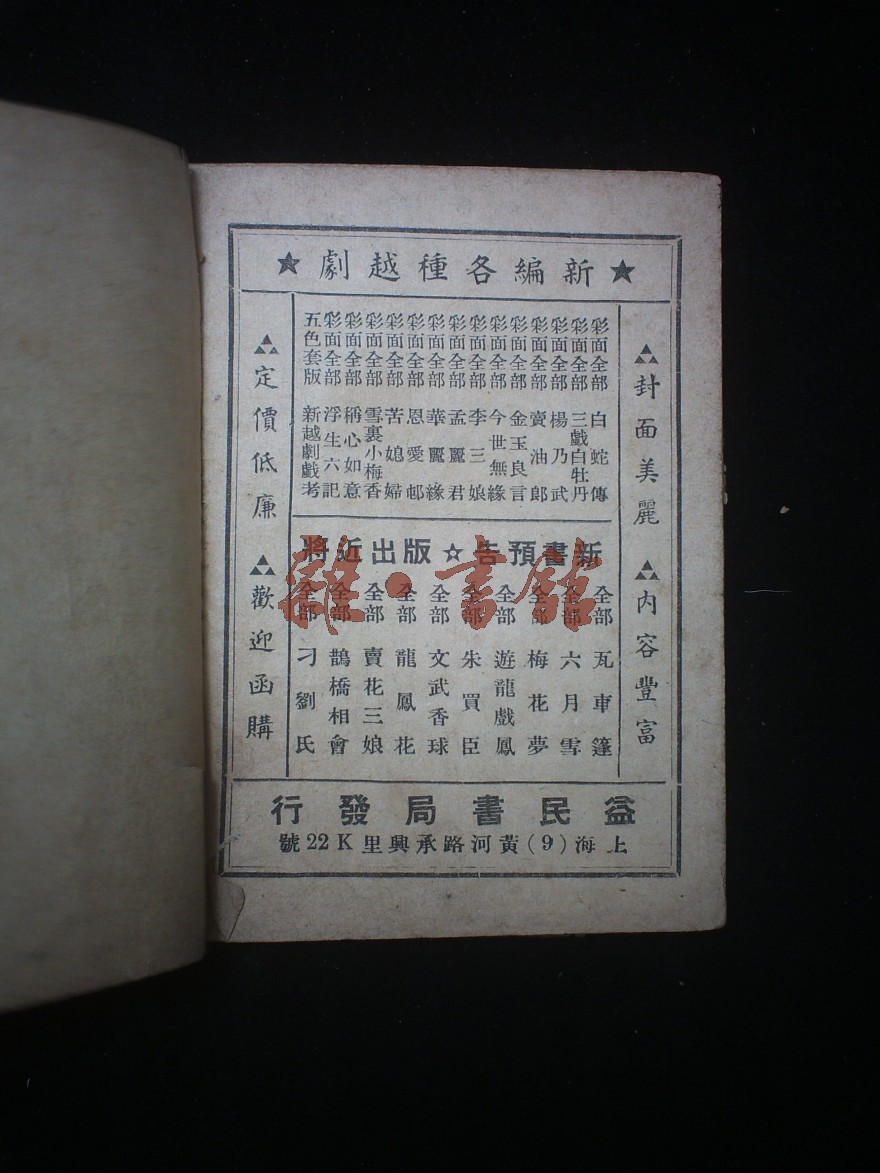 ★新編各種越劇★
▲封面美麗 ▲內容豐富
彩面全部 白蛇傳
彩面全部 三戲白牡丹
彩面全部 楊乃武
彩面全部 賣油郎
彩面全部 金玉良言
彩面全部 今世無緣
彩面全部 李三娘
彩面全部 孟麗君
彩面全部 華麗緣
彩面全部 恩愛邨
彩面全部 苦媳婦
彩面全部 雪裏小梅香
彩面全部 稱心如意
彩面全部 浮生六記
五色套版 新越劇戲考
新書預告☆版出近將
全部 瓦車篷
全部 六月雪
全部 梅花夢
全部 遊龍戲鳳
全部 朱買臣
全部 文武香球
全部 龍鳳花
全部 賣花三娘
全部 鵲橋相會
全部 刁劉氏
▲定價低廉 ▲歡迎函購
益民書局發行
上海(9)黃河路承興里K22號
雜·書館